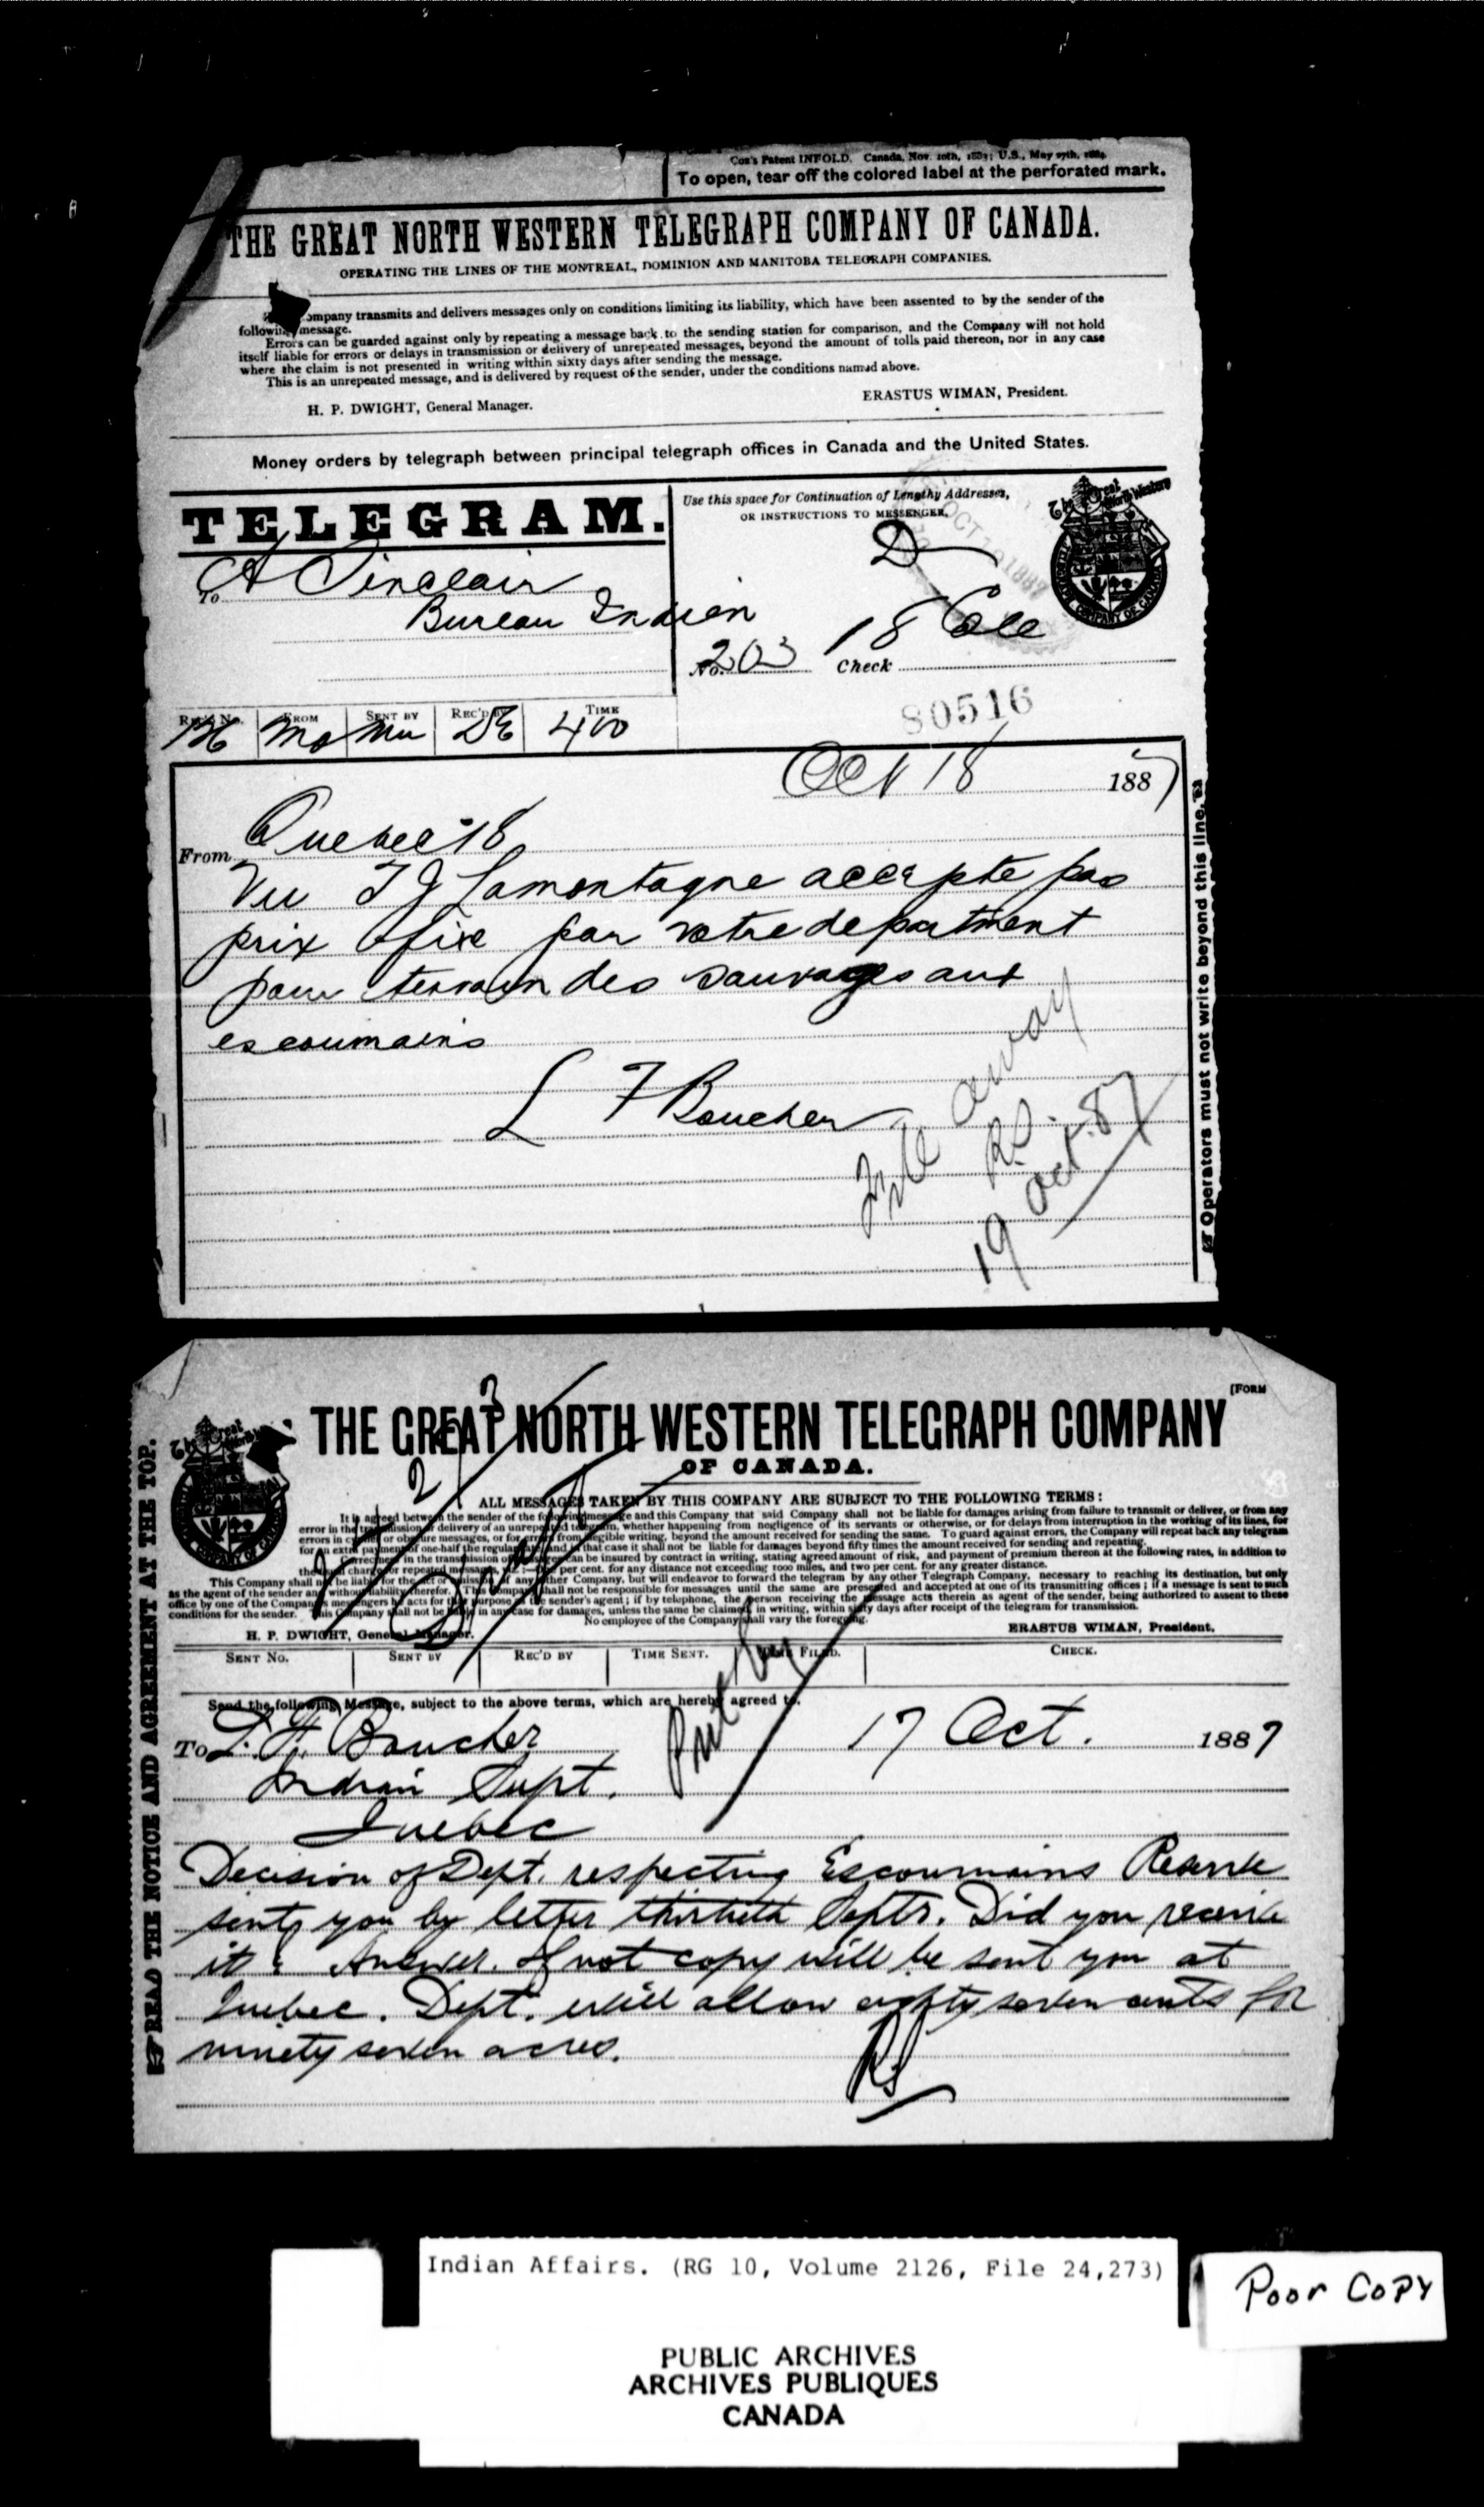 Cox's Patent INFOLD. Canada, Nov. 10th, 1883; U.S., May 27th, 1884.
To open, tear off the colored label at the perforated mark.
THE GREAT NORTH WESTERN TELEGRAPH COMPANY OF CANADA.
OPERATING THE LINES OF THE MONTREAL, DOMINION AND MANITOBA TELEGRAPH COMPANIES.
ompany transmits and delivers messages only on conditions limiting its liability, which have been assented to by the sender of the
following message.
Errors can be guarded against only by repeating a message back to the sending station for comparison, and the Company will not hold
itself liable for errors or delays in transmission or delivery of unrepeated messages, beyond the amount of tolls paid thereon, nor in any case
where the claim is not presented in writing within sixty days after sending the message.
This is an unrepeated message, and is delivered by request of the sender, under the conditions named above.
H. P. DWIGHT, General Manager.
ERASTUS WIMAN, President.
Money orders by telegraph between principal telegraph offices in Canada and the United States.
TELEGRAM.
Use this space for Continuation of Lengthy Addresses,
OR INSTRUCTIONS TO MESSENGER.
D
To A Sinclair
Bureau Indien
No. 203 Check 18 Cole
80516
REC'D No. FROM SENT BY REC'D BY TIME
126 Mo Mu DE 400
Oct 18 1887
From Quebec 18
Vu T J Lamontagne accepte pas
prix fixe par votre department
pour terrain des sauvages aux
escoumains
L F Boucher
File away
R.S.
19 Oct. 87
Operators must not write beyond this line.
[FORM
THE GREAT NORTH WESTERN TELEGRAPH COMPANY
OF CANADA.
ALL MESSAGES TAKEN BY THIS COMPANY ARE SUBJECT TO THE FOLLOWING TERMS:
It is agreed between the sender of the following message and this Company that said Company shall not be liable for damages arising from failure to transmit or deliver, or from any
error in the transmission or delivery of an unrepeated telegram, whether happening from negligence of its servants or otherwise, or for delays from interruption in the working of its lines, for
errors in cypher or obscure messages, or for errors from illegible writing, beyond the amount received for sending the same. To guard against errors, the Company will repeat back any telegram
for an extra payment of one-half the regular rate, and in that case it shall not be liable for damages beyond fifty times the amount received for sending and repeating.
Correctness in the transmission of messages can be insured by contract in writing, stating agreed amount of risk, and payment of premium thereon at the following rates, in addition to
the usual charge for repeated messages, viz.:—One per cent. for any distance not exceeding 1000 miles, and two per cent. for any greater distance.
This Company shall not be liable for the act or omission of any other Company, but will endeavor to forward the telegram by any other Telegraph Company, necessary to reaching its destination, but only
as the agent of the sender and without liability therefor. This Company shall not be responsible for messages until the same are presented and accepted at one of its transmitting offices; if a message is sent to such
office by one of the Company's messengers he acts for that purpose as the sender's agent; if by telephone, the person receiving the message acts therein as agent of the sender, being authorized to assent to these
conditions for the sender. This Company shall not be liable in any case for damages, unless the same be claimed, in writing, within sixty days after receipt of the telegram for transmission.
No employee of the Company shall vary the foregoing.
H. P. DWIGHT, General Manager.
ERASTUS WIMAN, President.
SENT No. SENT BY REC'D BY TIME SENT. TIME FILED. CHECK.
Send the following Message, subject to the above terms, which are hereby agreed to.
17 Oct. 1887
To L. F. Boucher
Indian Supt.
Quebec
Decision of Dept. respecting Escoumains Reserve
sent you by letter thirtieth Septr. Did you receive
it? Answer. If not copy will be sent you at
Quebec. Dept. will allow eighty seven cents for
ninety seven acres.
RS
READ THE NOTICE AND AGREEMENT AT THE TOP.
Indian Affairs. (RG 10, Volume 2126, File 24,273)
Poor Copy
PUBLIC ARCHIVES
ARCHIVES PUBLIQUES
CANADA